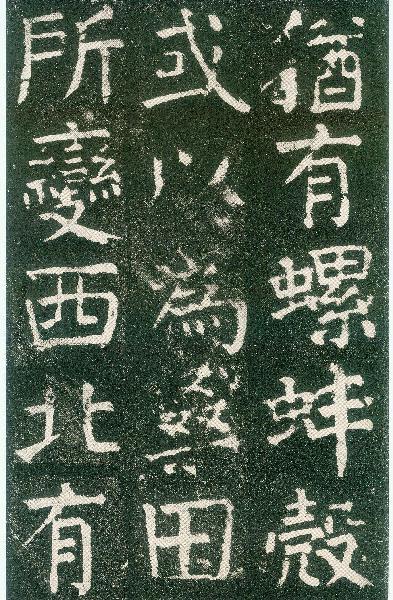 猶有螺蚌殼
或以為桑田
所變西北有